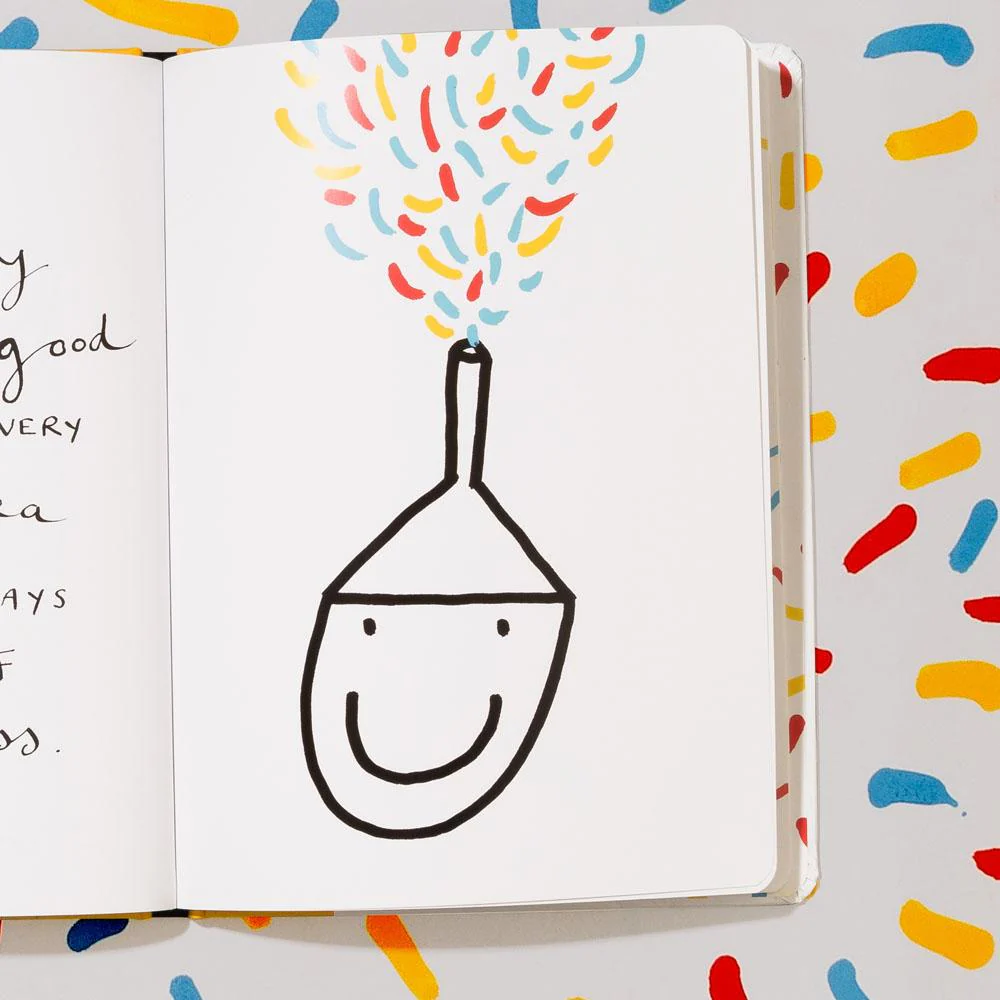 y
good
VERY
ra
AYS
F
ss.